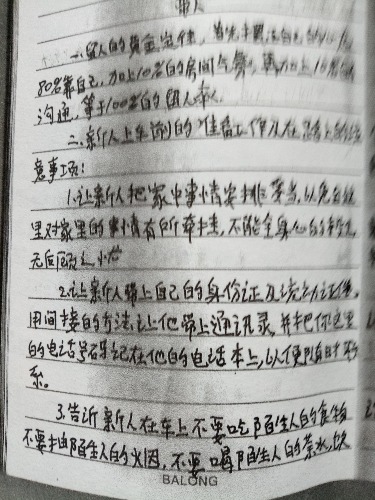 留人
一、留人的黄金定律，首先
80%靠自己，加上10%的房间气氛，再加上10%的
沟通，等于100%的留人率。
二、新人上车前的准备工作及在路上的注
意事项：
1.让新人把家中事情安排妥当，以免在这
里对家里的事情有所牵挂，不能全身心的
无后顾之忧
2.让新人带上自己的身份证及流动证件，
用间接的方法让他带上通讯录，并把你这里
的电话号码记在他的电话本上，以便随时联
系。
3.告诉新人在车上不要吃陌生人的食物
不要抽陌生人的火烟，不要喝陌生人的茶水，饮
BALONG